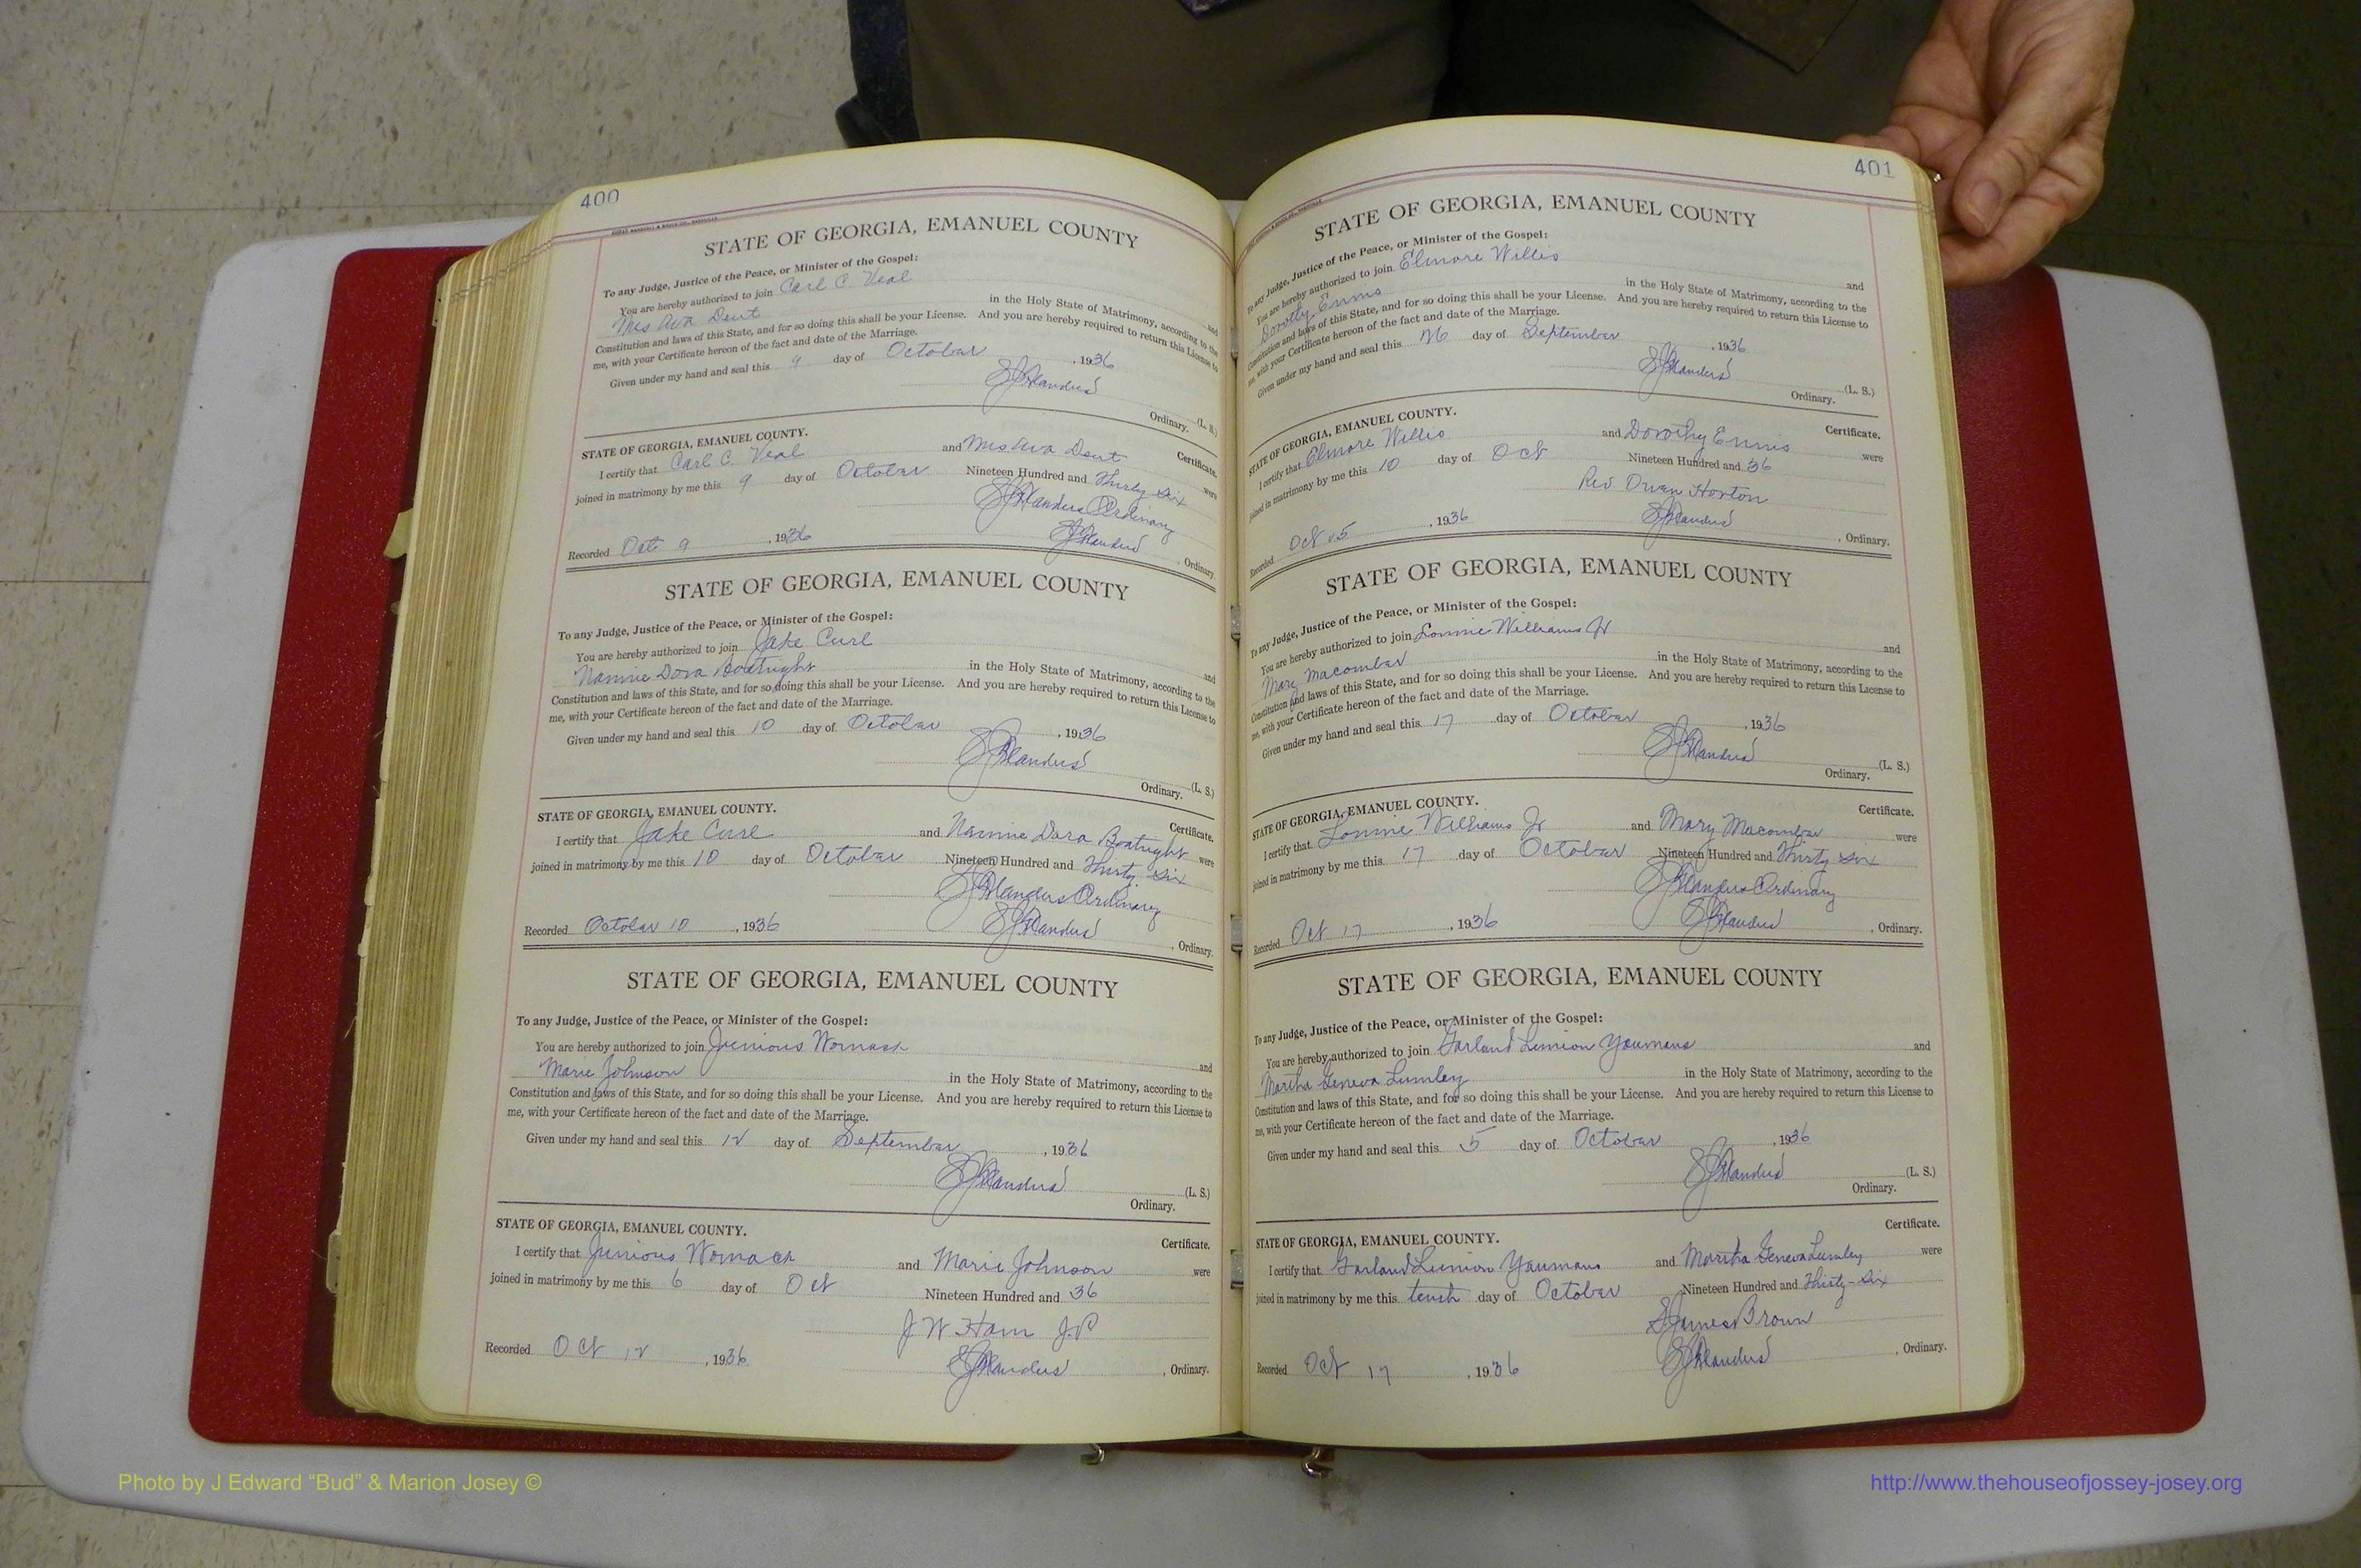 400
STATE OF GEORGIA, EMANUEL COUNTY
To any Judge, Justice of the Peace, or Minister of the Gospel:
You are hereby authorized to join Carl C. Veal and
Mrs Ava Dent in the Holy State of Matrimony, according to the
Constitution and laws of this State, and for so doing this shall be your License. And you are hereby required to return this License to
me, with your Certificate hereon of the fact and date of the Marriage.
Given under my hand and seal this 9 day of October, 1936
(L. S.)
Ordinary.
STATE OF GEORGIA, EMANUEL COUNTY. Certificate.
I certify that Carl C. Veal and Mrs Ava Dent were
joined in matrimony by me this 9 day of October Nineteen Hundred and Thirty Six
Ordinary
Recorded Oct 9, 1936, Ordinary.
STATE OF GEORGIA, EMANUEL COUNTY
To any Judge, Justice of the Peace, or Minister of the Gospel:
You are hereby authorized to join Jake Curl and
Nannie Dora Boatright in the Holy State of Matrimony, according to the
Constitution and laws of this State, and for so doing this shall be your License. And you are hereby required to return this License to
me, with your Certificate hereon of the fact and date of the Marriage.
Given under my hand and seal this 10 day of October, 1936
(L. S.)
Ordinary.
STATE OF GEORGIA, EMANUEL COUNTY. Certificate.
I certify that Jake Curl and Nannie Dora Boatright were
joined in matrimony by me this 10 day of October Nineteen Hundred and Thirty Six
Ordinary
Recorded October 10, 1936, Ordinary.
STATE OF GEORGIA, EMANUEL COUNTY
To any Judge, Justice of the Peace, or Minister of the Gospel:
You are hereby authorized to join Junious Womack and
Marie Johnson in the Holy State of Matrimony, according to the
Constitution and laws of this State, and for so doing this shall be your License. And you are hereby required to return this License to
me, with your Certificate hereon of the fact and date of the Marriage.
Given under my hand and seal this 12 day of September, 1936
(L. S.)
Ordinary.
STATE OF GEORGIA, EMANUEL COUNTY. Certificate.
I certify that Junious Womack and Marie Johnson were
joined in matrimony by me this 6 day of Oct Nineteen Hundred and 36
J W Ham J.P
Recorded Oct 12, 1936, Ordinary.
401
STATE OF GEORGIA, EMANUEL COUNTY
To any Judge, Justice of the Peace, or Minister of the Gospel:
You are hereby authorized to join Elmore Willis and
Dorothy Ennis in the Holy State of Matrimony, according to the
Constitution and laws of this State, and for so doing this shall be your License. And you are hereby required to return this License to
me, with your Certificate hereon of the fact and date of the Marriage.
Given under my hand and seal this 26 day of September, 1936
(L. S.)
Ordinary.
STATE OF GEORGIA, EMANUEL COUNTY. Certificate.
I certify that Elmore Willis and Dorothy Ennis were
joined in matrimony by me this 10 day of Oct Nineteen Hundred and 36
Rev. Owen Horton
Recorded Oct 15, 1936, Ordinary.
STATE OF GEORGIA, EMANUEL COUNTY
To any Judge, Justice of the Peace, or Minister of the Gospel:
You are hereby authorized to join Lonnie Williams Jr and
Mary Macomber in the Holy State of Matrimony, according to the
Constitution and laws of this State, and for so doing this shall be your License. And you are hereby required to return this License to
me, with your Certificate hereon of the fact and date of the Marriage.
Given under my hand and seal this 17 day of October, 1936
(L. S.)
Ordinary.
STATE OF GEORGIA, EMANUEL COUNTY. Certificate.
I certify that Lonnie Williams Jr and Mary Macomber were
joined in matrimony by me this 17 day of October Nineteen Hundred and Thirty Six
Ordinary
Recorded Oct 17, 1936, Ordinary.
STATE OF GEORGIA, EMANUEL COUNTY
To any Judge, Justice of the Peace, or Minister of the Gospel:
You are hereby authorized to join Garland Youmans and
Martha Geneva Lumley in the Holy State of Matrimony, according to the
Constitution and laws of this State, and for so doing this shall be your License. And you are hereby required to return this License to
me, with your Certificate hereon of the fact and date of the Marriage.
Given under my hand and seal this 5 day of October, 1936
(L. S.)
Ordinary.
STATE OF GEORGIA, EMANUEL COUNTY. Certificate.
I certify that Garland Youmans and Martha Geneva Lumley were
joined in matrimony by me this tenth day of October Nineteen Hundred and Thirty-Six
James Brown
Recorded Oct 17, 1936, Ordinary.
Photo by J Edward “Bud” & Marion Josey ©
http://www.thehouseofjossey-josey.org